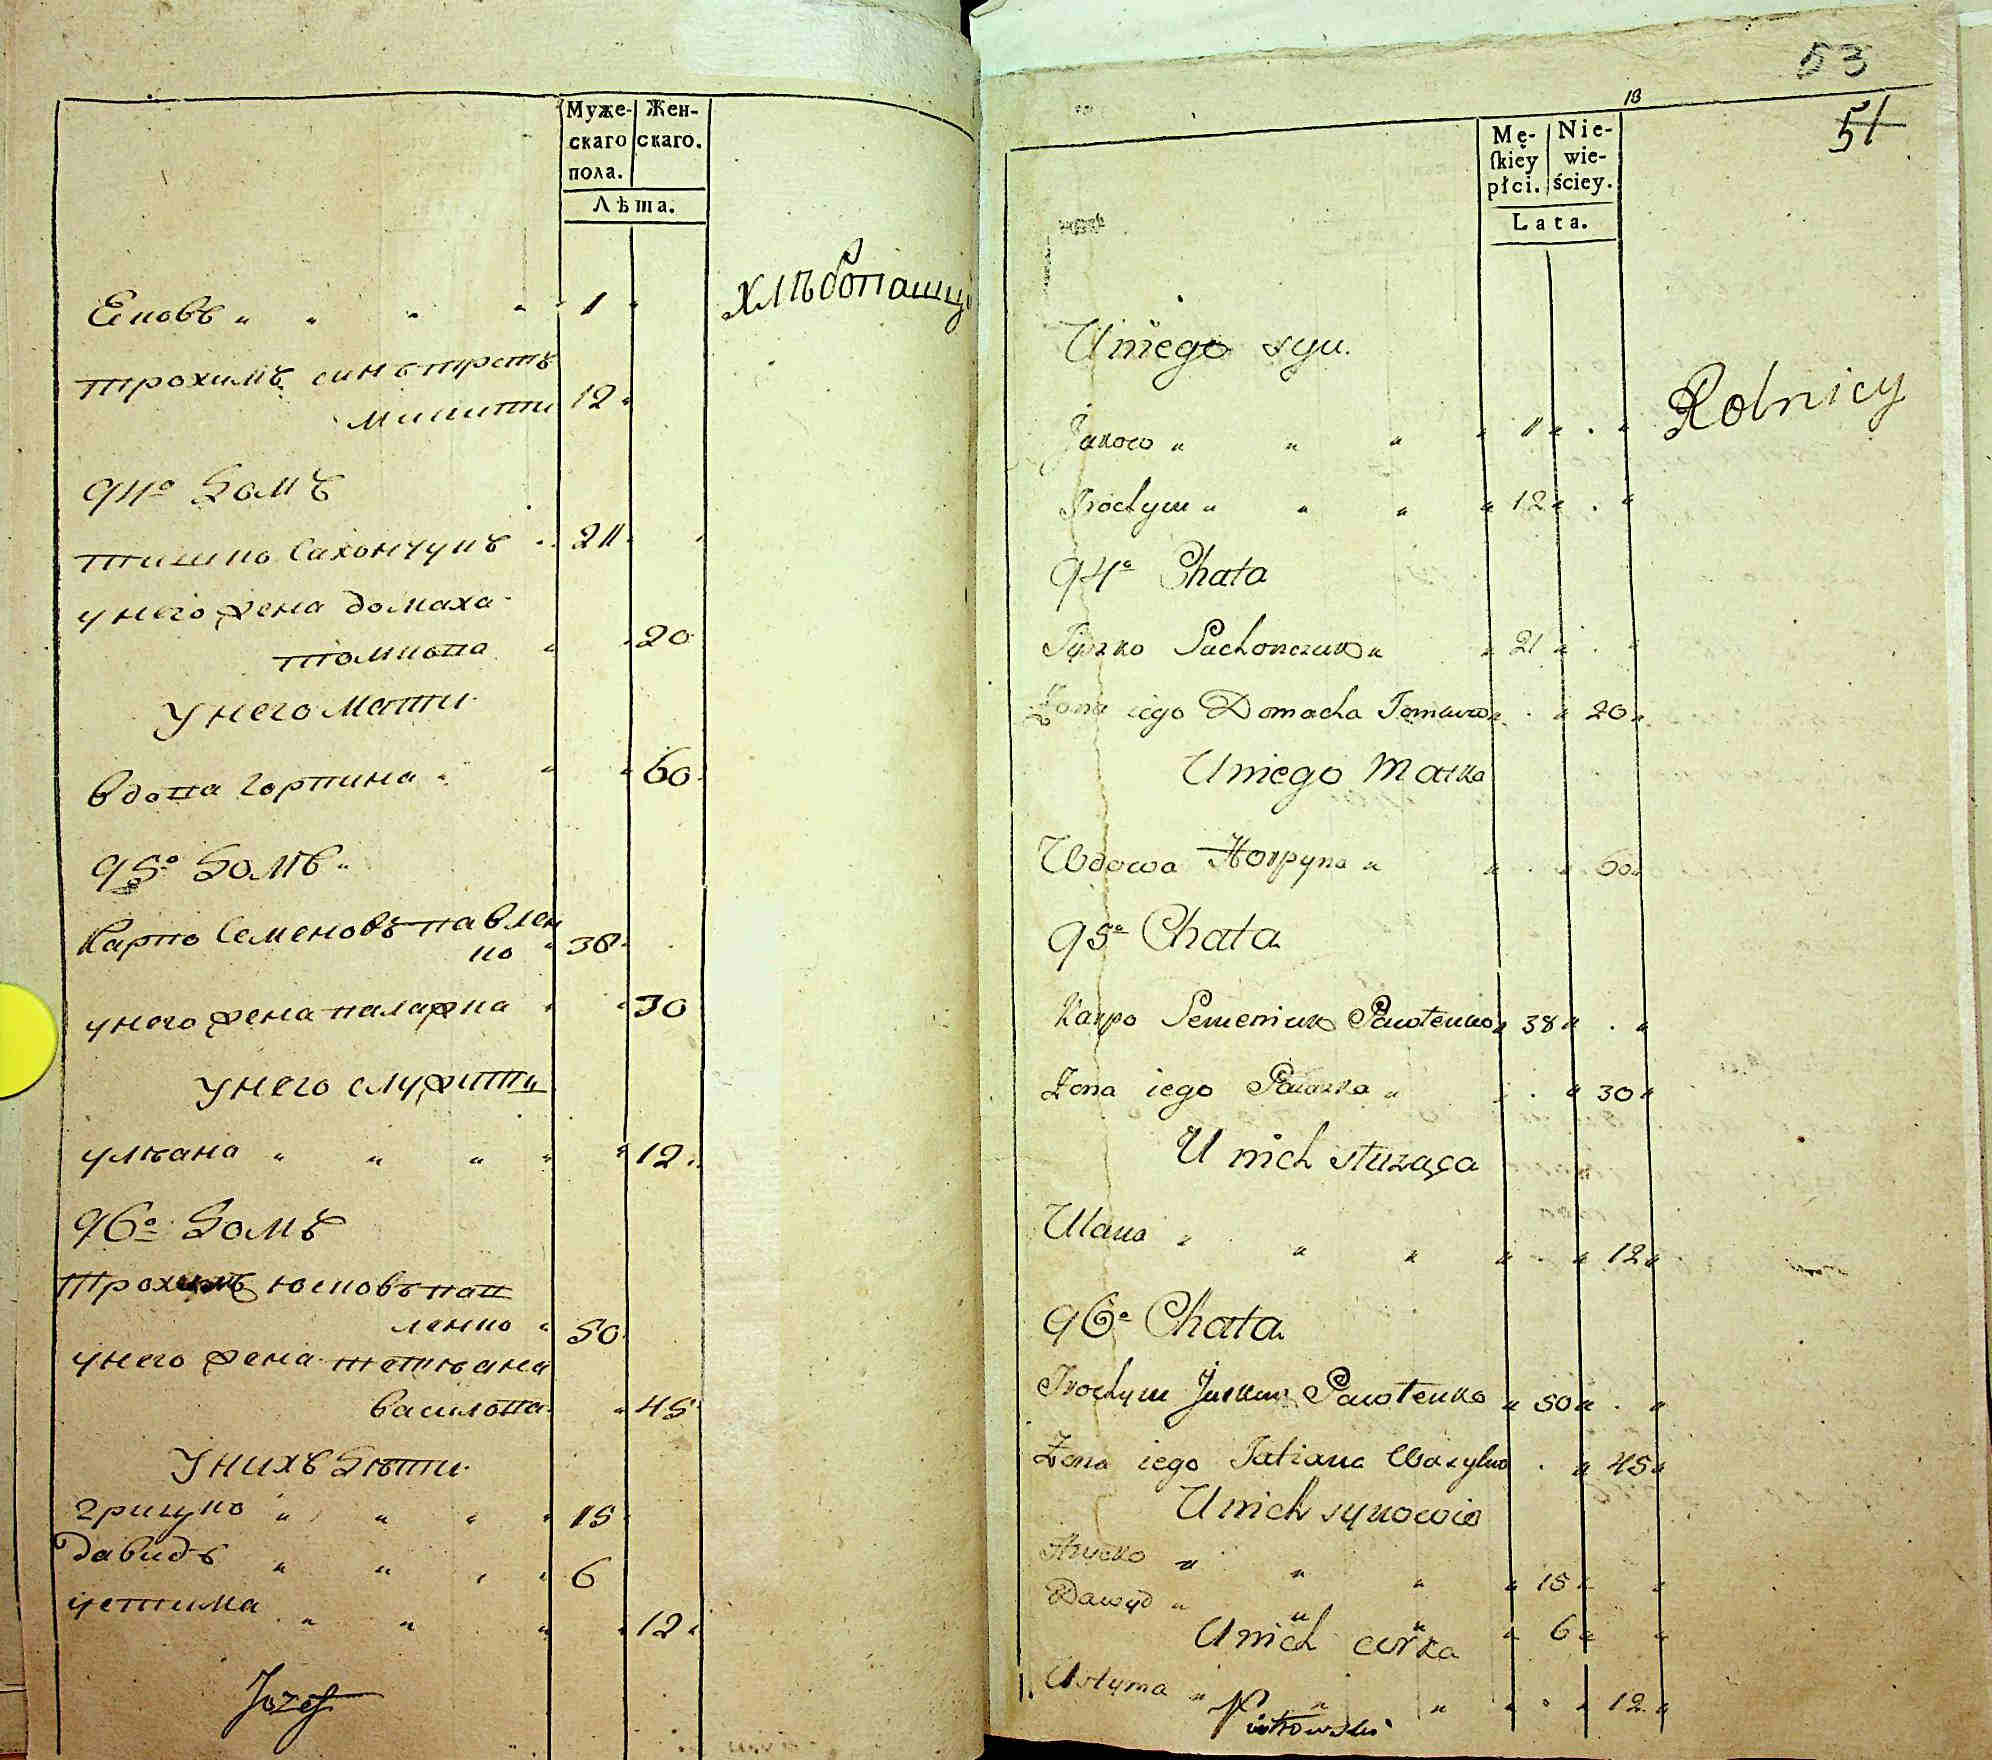 Муже-
скаго
пола.
Жен-
скаго.
Лѣта.
Хлѣбопашцы
Яковъ " " " " 1 "
Трохимъ синъ третъ
12 "
94о Домъ
Тишко Сахончукъ " 21 "
у него жена домаха
томкова " " 20
У него мати
вдова горпина " " " 60
95о Домъ "
Карпо Семеновъ павлен
ко " 38 "
у него жена палажка " " 30
У него служити
уляна " " " " " 12 "
96о Домъ
Трохимъ юсковъ пав
ленко " 50
у него жена тетяна
василова " 45
У нихъ дѣти
грицко " " " " 15
давидъ " " " " 6
устима " " " " 12 "
Jozef
53
13
51
Mę-
ſkiey
płci.
Nie-
wie-
ściey.
Lata.
Rolnicy
U niego syn
Jakow " " " " 1 " . "
Trochym " " " " 12 " . "
94o Chata
Tyszko Sachonczuk " " 21 " . "
Żona iego Domacha Tomkowa " . " 20 "
U niego Matka
Wdowa Horpyna " " . " 60 "
95o Chata
Karpo Semeniuk Pawlenko " 38 " . "
Żona iego Palazka " . " 30 "
U nich służąca
Ulana " " " " . " 12 "
96o Chata
Trochym Juskow Pawlenko " 50 " . "
Żona iego Tatiana Wasylowa . " 45 "
U nich synowie
Hrycko " " " " 15 " "
Dawyd " " " " 6 " "
U nich curka
Ustyma " " " " . " 12 "
Piotrowski